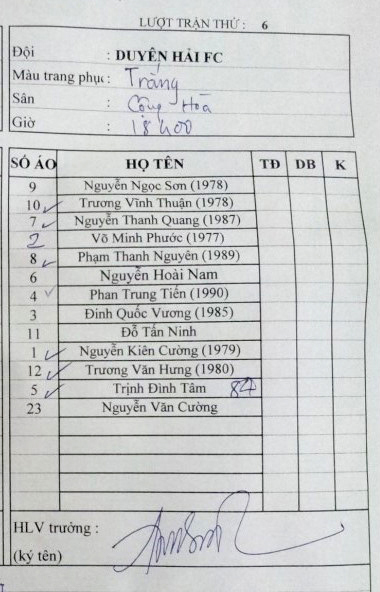 LƯỢT TRẬN THỨ : 6
Đội : DUYÊN HẢI FC
Màu trang phục : Trắng
Sân : Cộng Hoà
Giờ : 18h00
SỐ ÁO HỌ TÊN TĐ DB K
9 Nguyễn Ngọc Sơn (1978)
10 ✓ Trương Vĩnh Thuận (1978)
7 ✓ Nguyễn Thanh Quang (1987)
2 Võ Minh Phước (1977)
8 ✓ Phạm Thanh Nguyên (1989)
6 Nguyễn Hoài Nam
4 ✓ Phan Trung Tiến (1990)
3 Đinh Quốc Vương (1985)
11 Đỗ Tấn Ninh
1 ✓ Nguyễn Kiên Cường (1979)
12 ✓ Trương Văn Hưng (1980)
5 ✓ Trịnh Đình Tâm
23 Nguyễn Văn Cường
HLV trưởng :
(ký tên)